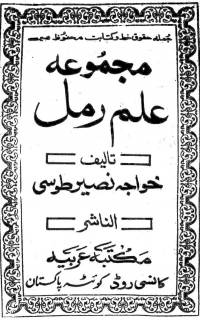 جملہ حقوق خط و کتابت محفوظ ہیں
مجموعہ
علم رمل
تالیف
خواجہ نصیر طوسی
الناشر
مکتبہ عربیہ
کانسی روڈ کوئٹہ پاکستان